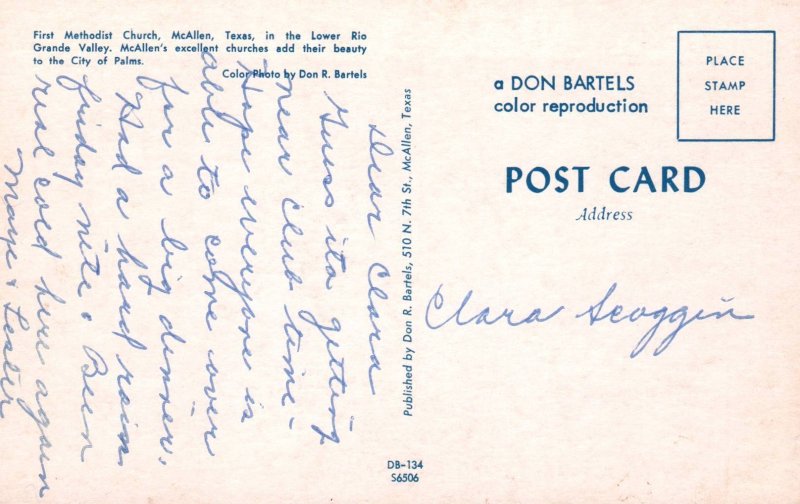 First Methodist Church, McAllen, Texas, in the Lower Rio
Grande Valley. McAllen's excellent churches add their beauty
to the City of Palms.
Color Photo by Don R. Bartels
Dear Clara
Guess its getting
near club time.
Hope everyone is
able to come over
for a big dinner.
Had a hard rain
friday nite & Been
real cold here again
Maye & Lester
Published by Don R. Bartels, 510 N. 7th St., McAllen, Texas
DB-134
S6506
a DON BARTELS
color reproduction
PLACE
STAMP
HERE
POST CARD
Address
Clara Scoggin